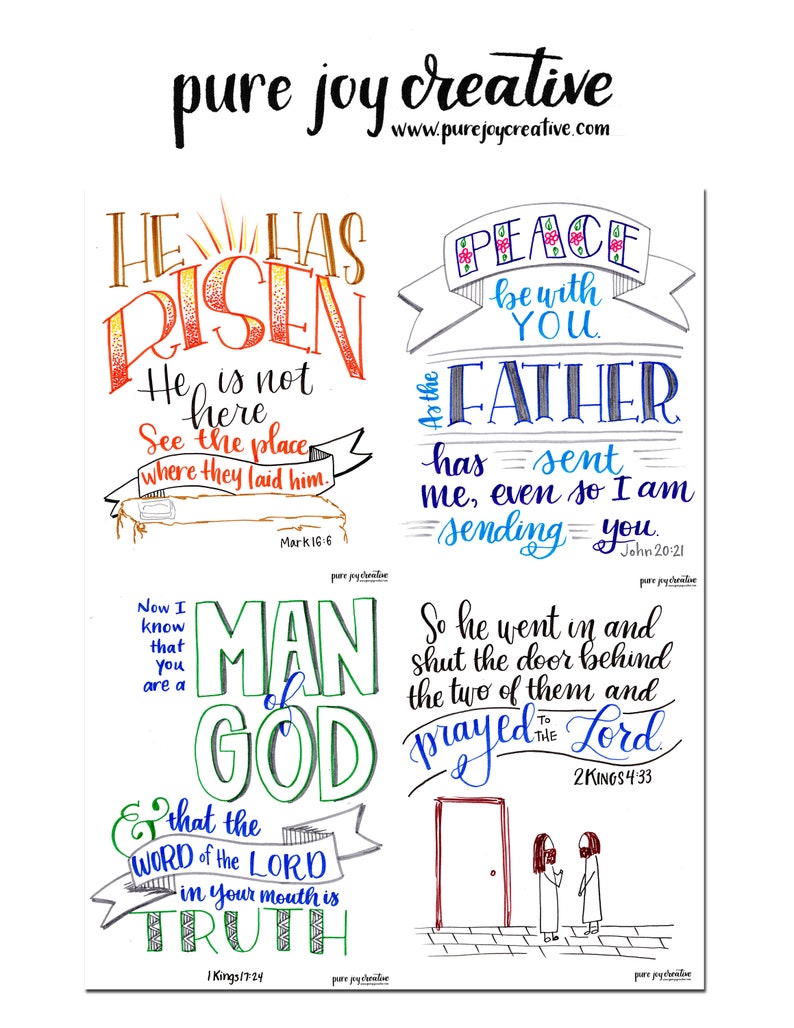 pure joy creative
www.purejoycreative.com
HE HAS
RISEN
He is not
here
See the place
where they laid him.
Mark 16:6
pure joy creative
PEACE
be with
YOU.
As the
FATHER
has sent
me, even so I am
sending you.
John 20:21
pure joy creative
Now I
know
that
you
are a
MAN
of
GOD
& that the
WORD of the LORD
in your mouth is
TRUTH
1 Kings 17:24
pure joy creative
So he went in and
shut the door behind
the two of them and
prayed TO THE Lord.
2 KINGS 4:33
pure joy creative